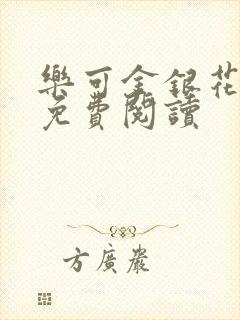 樂可金銀花
免費閱讀
方廣嚴